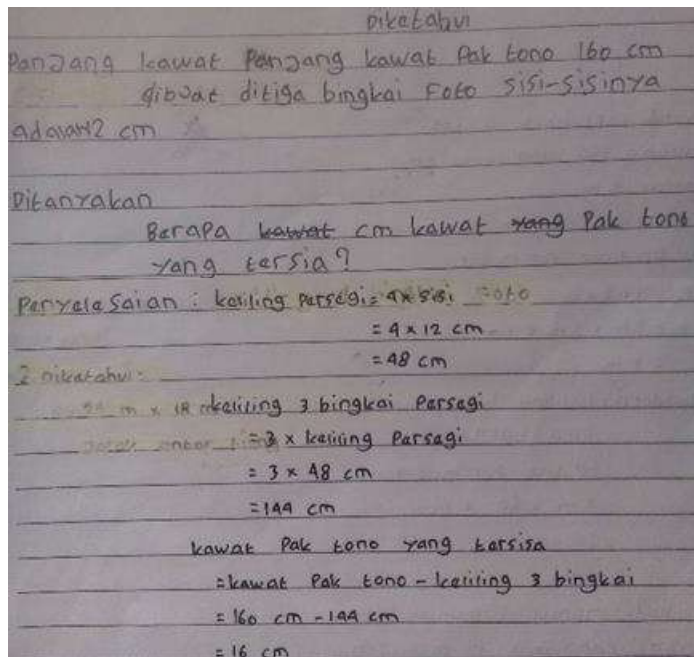 Diketahui
Panjang kawat Panjang kawat Pak tono 160 cm
dibuat ditiga bingkai Foto sisi-sisinya
adalah12 cm
Ditanyakan
Berapa kawat cm kawat yang Pak tono
yang tersia?
Penyelesaian : keliling Persegi = 4 x sisi Foto
= 4 x 12 cm
= 48 cm
2 Diketahui :
m x 18 keliling 3 bingkai Persegi
= 3 x keliling Persegi
= 3 x 48 cm
= 144 cm
kawat Pak tono yang tersisa
= kawat Pak tono - keliling 3 bingkai
= 160 cm - 144 cm
= 16 cm